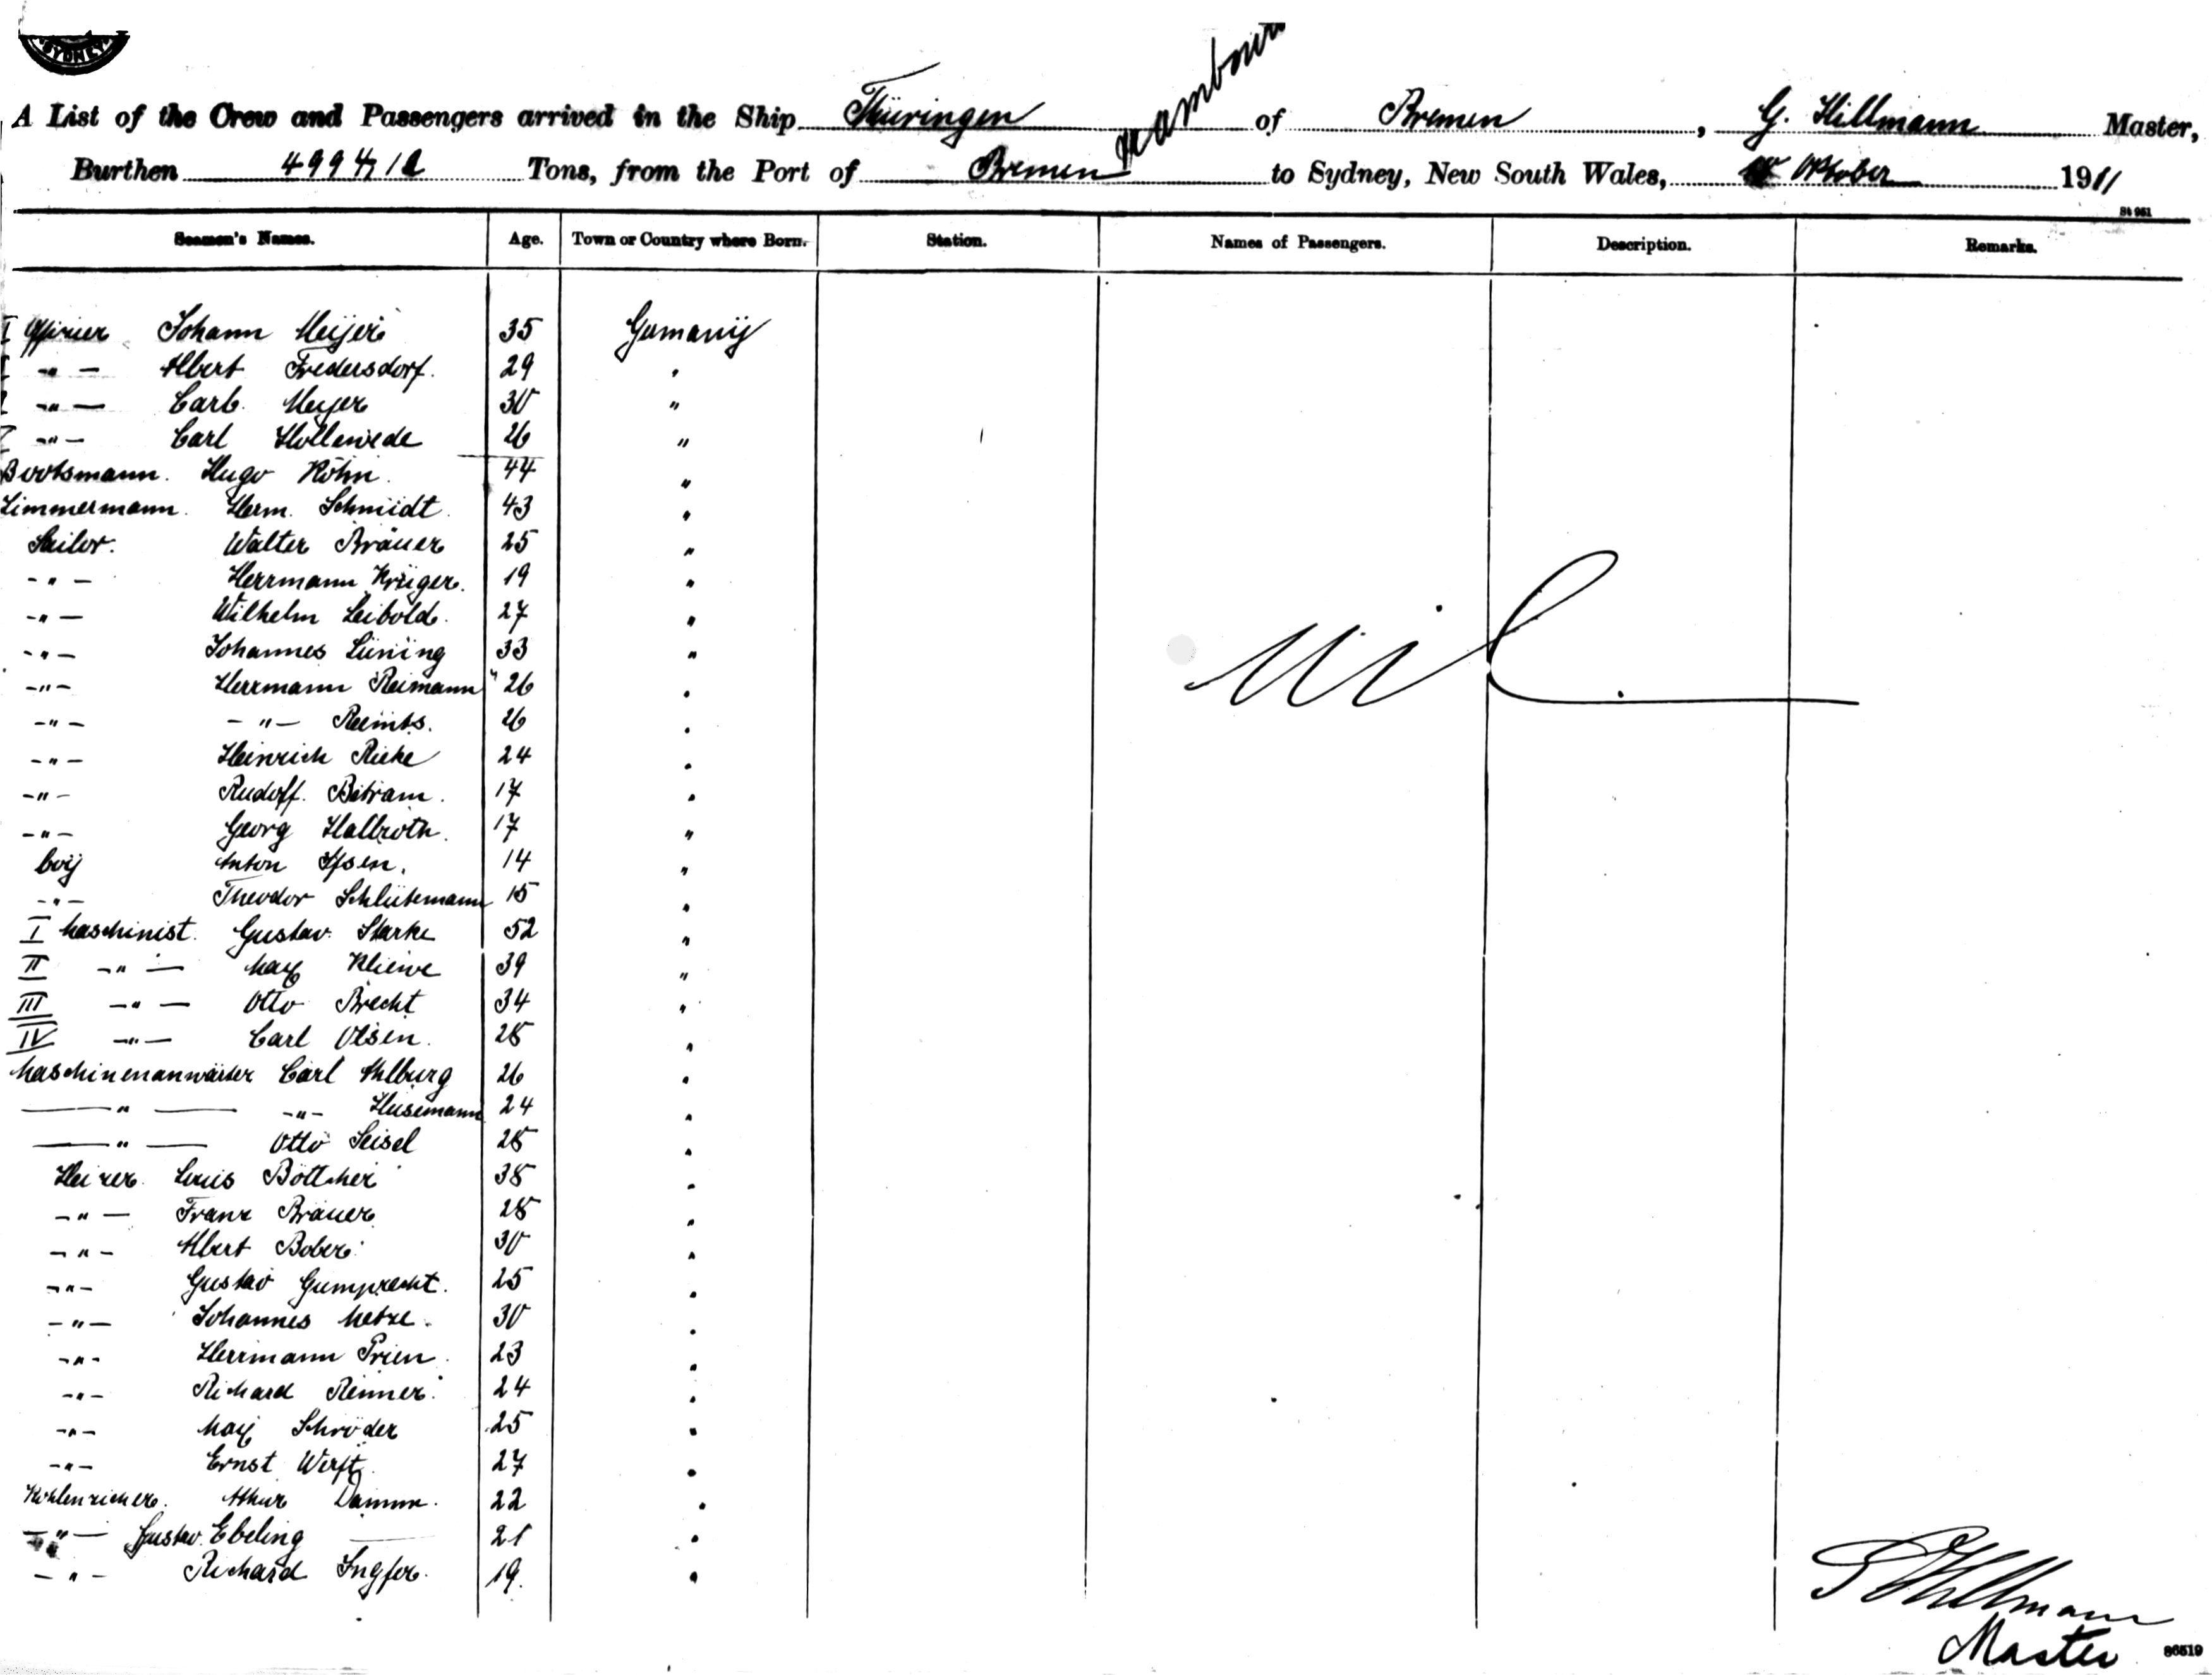 SYDNEY
Hambourg
A List of the Crew and Passengers arrived in the Ship Thüringen of Bremen, G. Hillmann Master,
Burthen 4994,12 Tons, from the Port of Bremen to Sydney, New South Wales, Oktober 1911
St 951
Seamen's Names. Age. Town or Country where Born. Station. Names of Passengers. Description. Remarks.
I Offizier Johann Meijer 35 Germanij
-"- Albert Fredersdorf. 29 "
-"- Carl Meyer 30 "
-"- Carl Hollewede 26 "
Bootsmann. Hugo Köhn. 44 "
Zimmermann. Herm. Schmidt. 43 "
Sailor. Walter Bräuer 25 "
-"- Herrmann Krüger. 19 "
-"- Wilhelm Leibold. 27 "
-"- Johannes Lüning 33 "
-"- Herrmann Reimann 26 "
-"- -"- Reints. 26 "
-"- Heinrich Rieke 24 "
-"- Rudolf. Bitram. 17 "
-"- Georg Hallroth. 17 "
boij Anton Ipsen. 14 "
-"- Theodor Schlütemann 15 "
I Maschinist. Gustav. Starke 52 "
II -"- Max Kliewe 39 "
III -"- Otto Brecht 34 "
IV -"- Carl Olsen. 28 "
Maschinenanwärter Carl Ahlburg 26 "
-"- -"- Husemann 24 "
-"- Otto Seisel 28 "
Heizer. Louis Böttcher 38 "
-"- Franz Bräuer 28 "
-"- Albert Bober 30 "
-"- Gustav Gumprecht. 25 "
-"- Johannes Metze. 30 "
-"- Herrmann Prien. 23 "
-"- Richard Renner. 24 "
-"- Max Schröder 25 "
-"- Ernst Werft. 27 "
Kohlenzieher. Athur Damm. 22 "
-"- Gustav. Ebeling 21 "
-"- Richard Ingfer. 19. "
Nil
G Hillmann
Master
86519